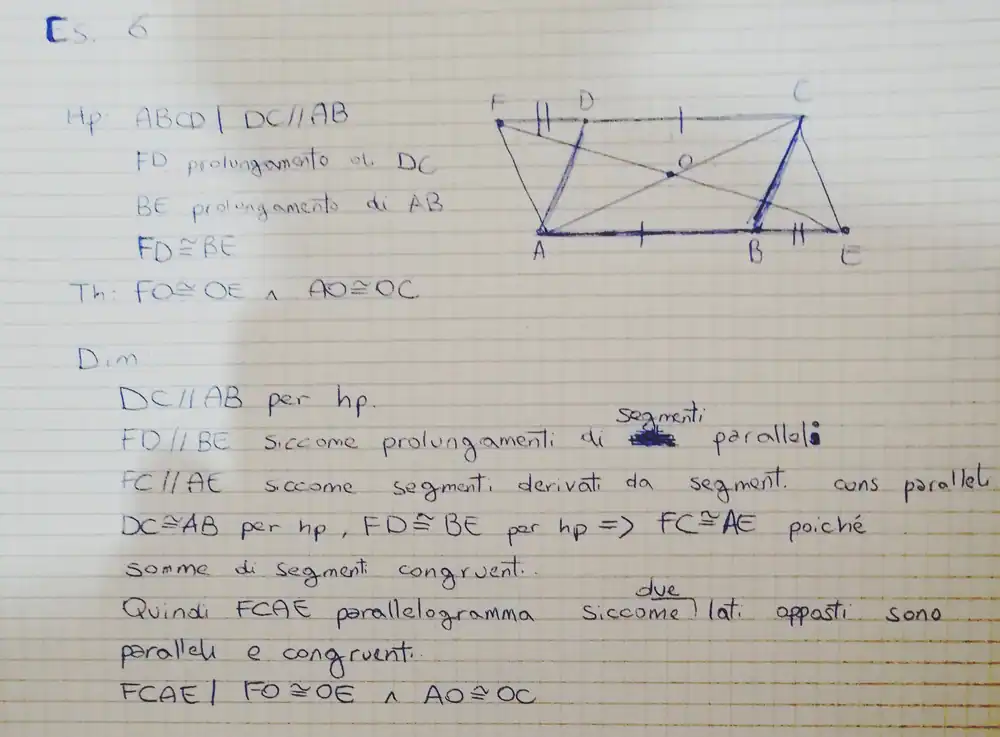 Es. 6
Hp: ABCD | DC//AB
FD prolungamento di DC
BE prolungamento di AB
FD≅BE
Th: FO≅OE ∧ AO≅OC
F D C
O
A B E
Dim
DC//AB per hp.
segmenti
FD//BE siccome prolungamenti di paralleli
FC//AE siccome segmenti derivati da segment. cons paralleli
DC≅AB per hp, FD≅BE per hp => FC≅AE poiché
somme di segmenti congruenti.
due
Quindi FCAE parallelogramma siccome lati opposti sono
paralleli e congruenti.
FCAE | FO≅OE ∧ AO≅OC